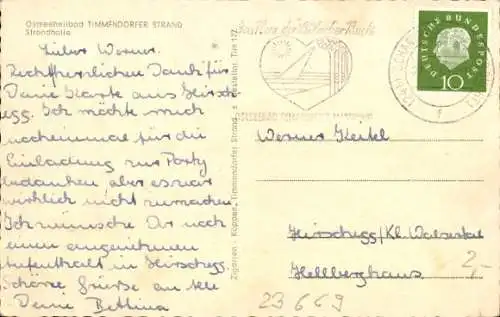 Ostseeheilbad TIMMENDORFER STRAND
Strandhalle
Lieber Werner.
Recht herzlichen Dank für
Deine Karte aus Hirsch-
egg. Ich möchte mich
nocheinmal für die
Einladung zur Party
bedanken, aber es war
wirklich nicht zu machen.
Ich wünsche Dir noch
einen angenehmen
Aufenthalt in Hirschegg.
Schöne Grüße an alle
Deine Bettina
Zigarren - Köppen, Timmendorfer Strand
Bestellnr. Tim 172
DEUTSCHE BUNDESPOST
10
Werner Keitel
Hirschegg/Kl. Walsertal
Hellberghaus
2,-
23669